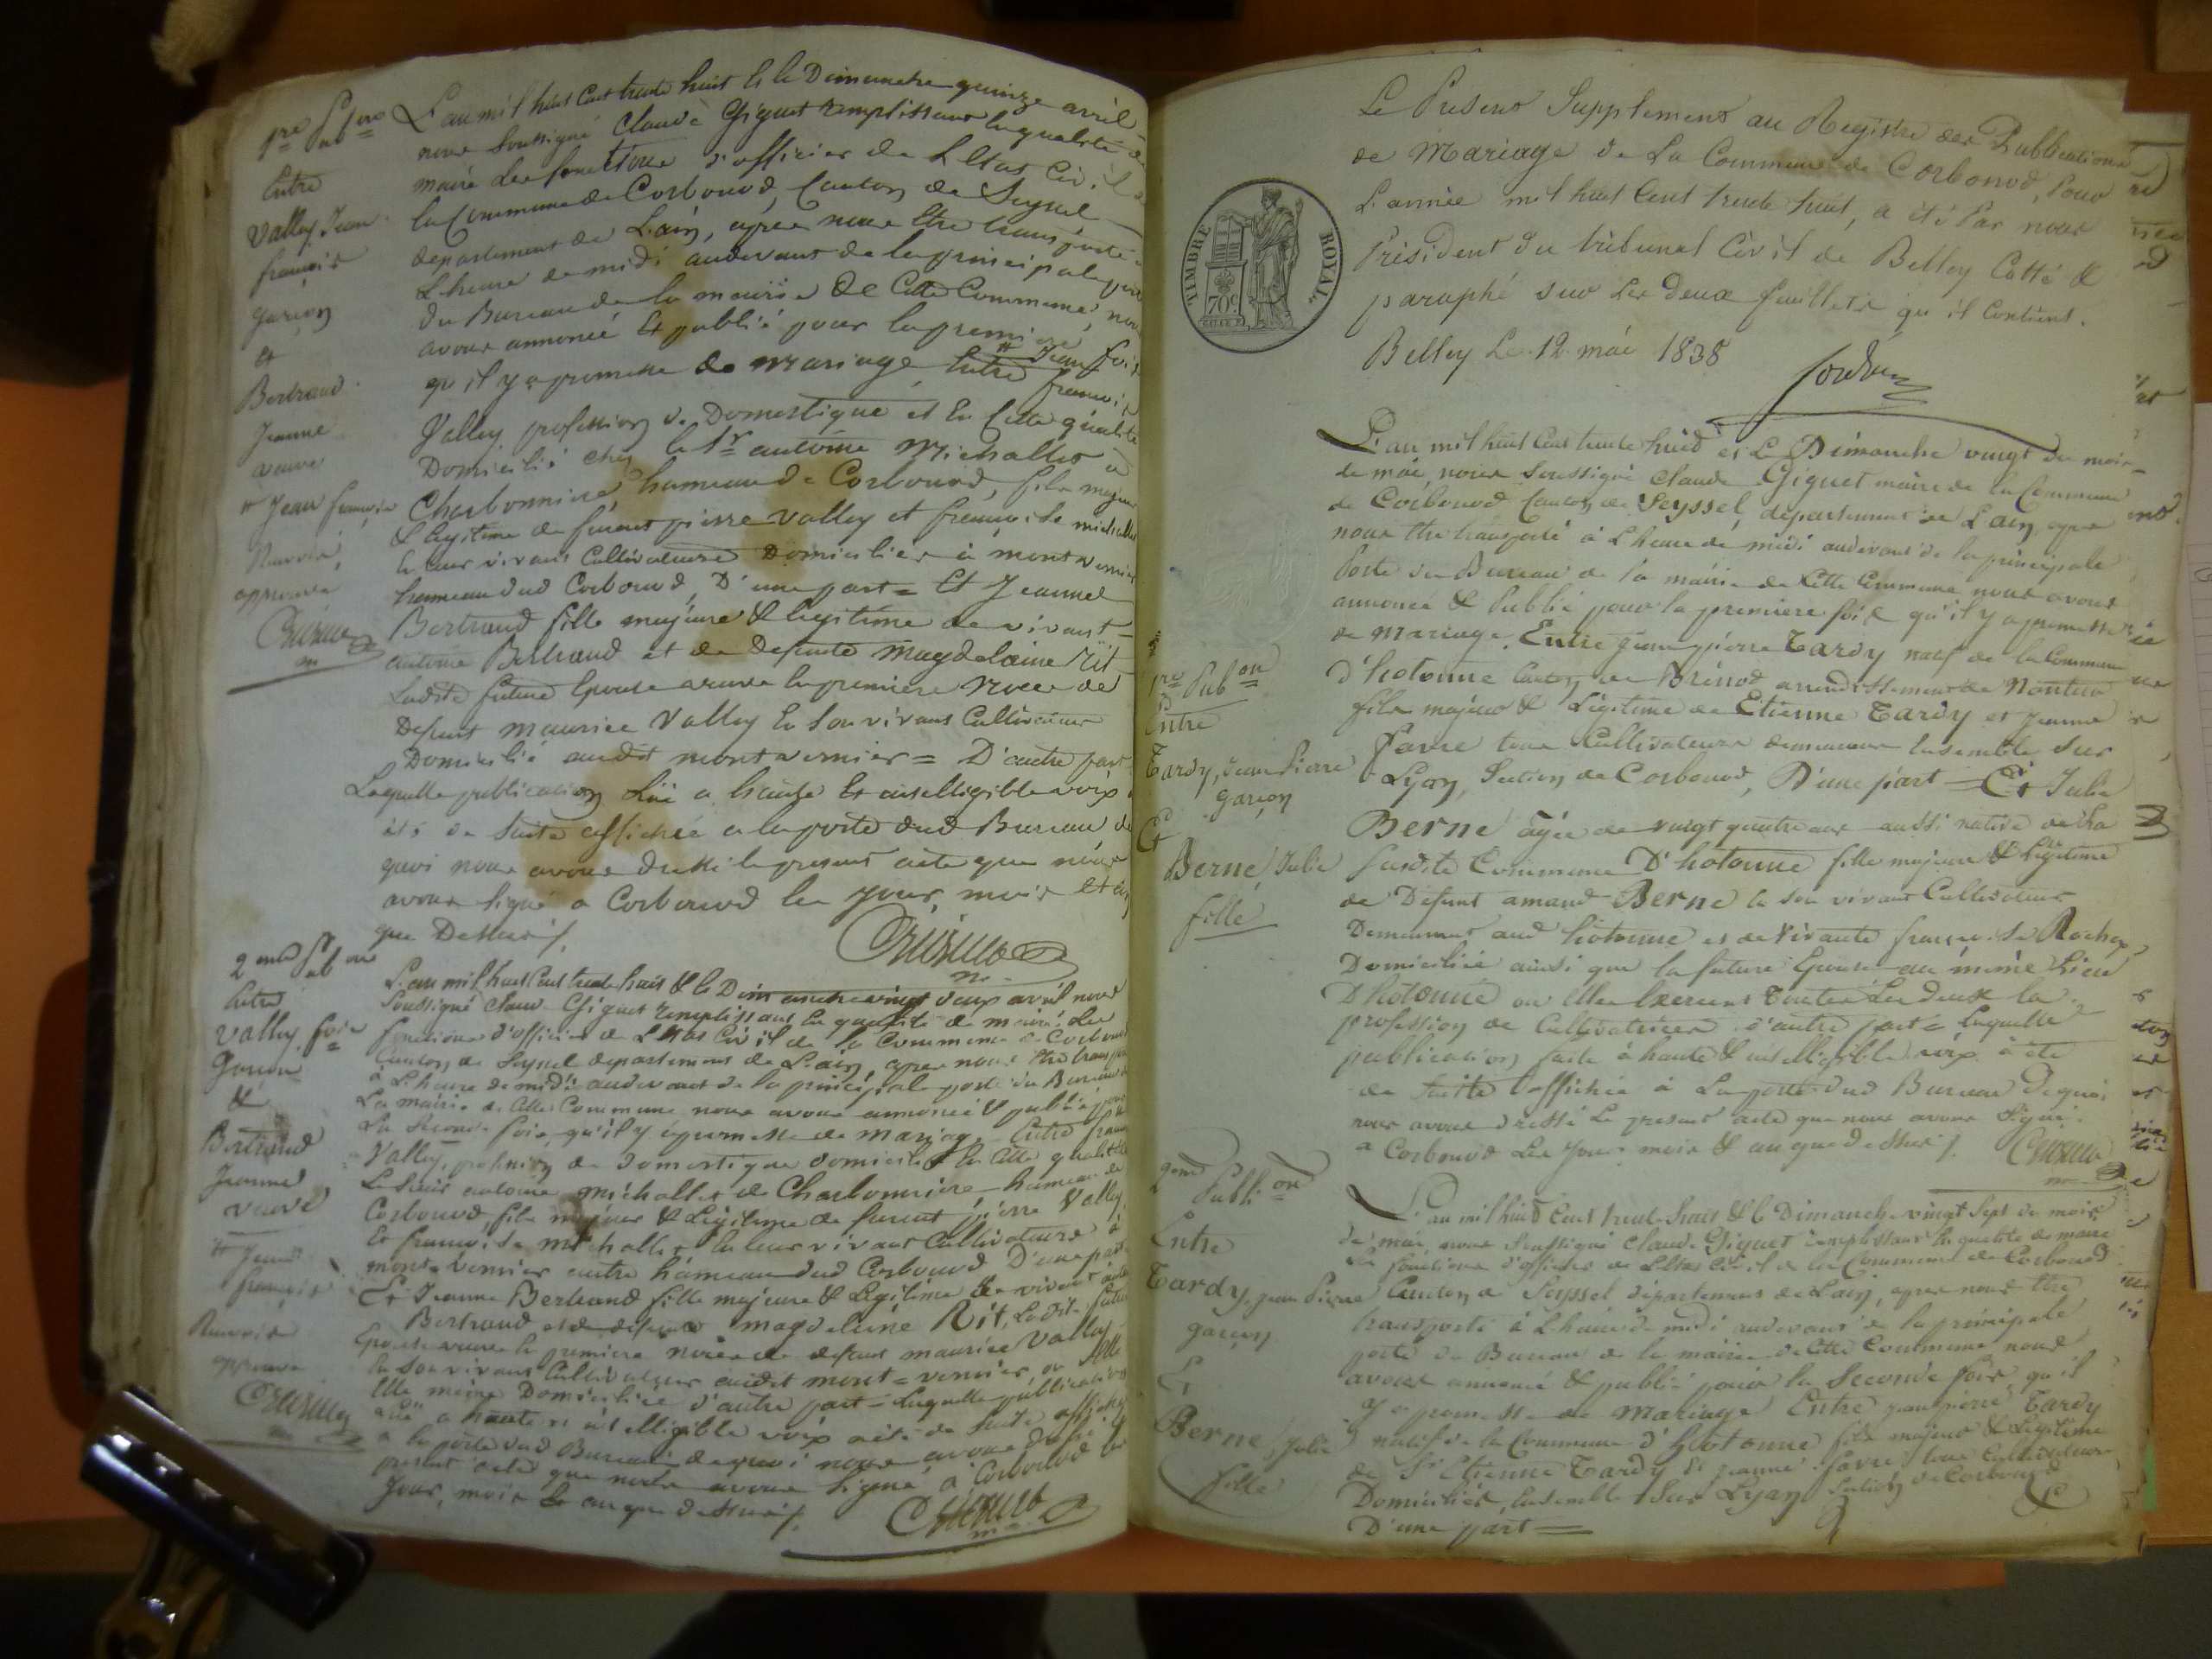 1re Pub on
Entre
Valley Jean
françois
garçon
et
Bertrand
Jeanne
veuve
# Jean françois
Renvoi
approuvé
L'an mil huit Cent trente huit Et le Dimanche quinze avril
nous Soussigné Claude Giguet remplissant la qualité de
maire des fonctions d'officier de L'Etat Civil de
la Commune de Corbonod, Canton de Seyssel
departement de L'ain, après nous être transporté à
L'heure de midi audevant de la principale porte
du Bureau de la mairie de Cette Commune, nous
avons annoncé Et publié pour la premiere fois
qu'il y a promesse de mariage Entre # Jean françois
Valley profession de Domestique et En Cette qualité
Domicilié chez le Sr antoine Michallet à
Charbonniere, hameau de Corbonod, fils majeur
& legitime de furent pierre Valley et françoise michallet
en leur vivant Cultivateurs Domiciliés à montvernier
hameau dud Corbonod, D'une part = Et Jeanne
Bertrand fille majeure & legitime de vivant
antoine Bertrand et de Defunte Magdelaine Rit
Ladite future Epouse veuve en premiere Noces de
Defunt maurice Valley En Son vivant Cultivateur
Domicilié audit montvernier = D'autre part
Laquelle publication Lüe a haute Et intelligible voix a
été de suite affichée a la porte dud Bureau de
quoi nous avons dressé le present acte que nous
avons Signé a Corbonod les jour, mois et an
que Dessus /.
2me Pub on
Entre
Valley fois
Garçon
&
Bertrand
Jeanne
veuve
# Jean
françois
Renvoi
approuvé
L'an mil huit Cent trente huit & le Dimanche vingt deux avril nous
Soussigné Claude Giguet remplissant la qualité de maire des
fonctions d'officier de L'Etat Civil de la Commune de Corbonod
Canton de Seyssel departement de L'ain, apres nous être transporté
à L'heure de midi audevant de la principale porte du Bureau de
La mairie de Cette Commune nous avons annoncé & publié pour
La Seconde fois, qu'il y a promesse de mariage Entre françois
Valley, profession de domestique domicilié En Cette qualité chez
Le Sieur antoine michallet de Charbonniere hameau de
Corbonod, fils majeur & Legitime de furent pierre Valley
Et françoise michallet En leur vivant Cultivateurs à
mont-vernier autre hameau dud Corbonod D'une part
Et Jeanne Bertrand fille majeure & Legitime de vivant
Bertrand et de defunte magdeleine Rit, Ladite future
Epouse veuve En premiere noces de defunt maurice Valley
En Son vivant Cultivateur audit mont-vernier, ou Elle
Elle même Domiciliée d'autre part = Laquelle publication
Lüe a haute et intelligible voix a été de suite affichée
a la porte dud Bureau de quoi nous avons dressé le
present acte que nous avons Signé à Corbonod les
Jour, mois Et an que dessus /.
Le Present Supplement au Registre des Publications
de Mariage de La Commune de Corbonod, Pour
L'année mil huit Cent trente huit, a été Par nous
Président du tribunal Civil de Belley Cotté &
paraphé sur Les deux feuillets qu'il Contient.
Belley Le 12 mai 1838
TIMBRE ROYAL
70 c.
1re Pub on
Entre
Tardy, Jean Pierre
garçon
Et
Berne, Julie
fille
L'an mil huit Cent trente huit et Le Dimanche vingt du mois
de mai, nous Soussigné Claude Giguet maire de la Commune
de Corbonod Canton de Seyssel, departement de L'ain, apres
nous être transporté à L'heure de midi audevant de la principale
Porte du Bureau de la mairie de Cette Commune nous avons
annoncé & Publié pour la premiere fois qu'il y a promesse
de Mariage. Entre Jean pierre Tardy natif de la Commune
D'hotonne Canton de Brénod arrondissement de Nantua
fils majeur & Légitime de Etienne Tardy et Jeanne
Favre tous Cultivateurs demeurant Ensemble Sur
Lyon, Section de Corbonod, D'une part = Et Julie
Berne agée de vingt quatre ans aussi native de La
Susdite Commune D'hotonne fille majeure & Légitime
de Defunt amand Berne en Son vivant Cultivateur
Demeurant aud hotonne et de Vivante françoise Rochex
Domiciliée ainsi que la future Epouse au même Lieu
D'hotonne ou Elles Exercent toutes Les deux la
profession de Cultivatrices d'autre part = Laquelle
publication faite à haute & intelligible voix a été
de suite affichée à La porte dud Bureau De quoi
nous avons dressé Le present acte que nous avons Signé
a Corbonod Les Jour mois & an que dessus /.
2me Publi on
Entre
Tardy, jean Pierre
garçon
Et
Berne, Julie
fille
L'an mil huit Cent trente huit & le Dimanche vingt Sept du mois
de mai nous Soussigné Claude Giguet remplissant la qualité de maire
des fonctions d'officier de L'Etat Civil de la Commune de Corbonod
Canton de Seyssel departement de L'ain, apres nous être
transporté à L'heure de midi audevant de la principale
porte du Bureau de la mairie de Cette Commune nous
avons annoncé & publié pour la Seconde fois qu'il
y a promesse de Mariage Entre jean pierre Tardy
natif de la Commune d'hotonne fils majeur & Legitime
de Sr Etienne Tardy & jeanne favre tous Cultivateurs
Domiciliés, Ensemble Sur Lyon Section de Corbonod
D'une part =